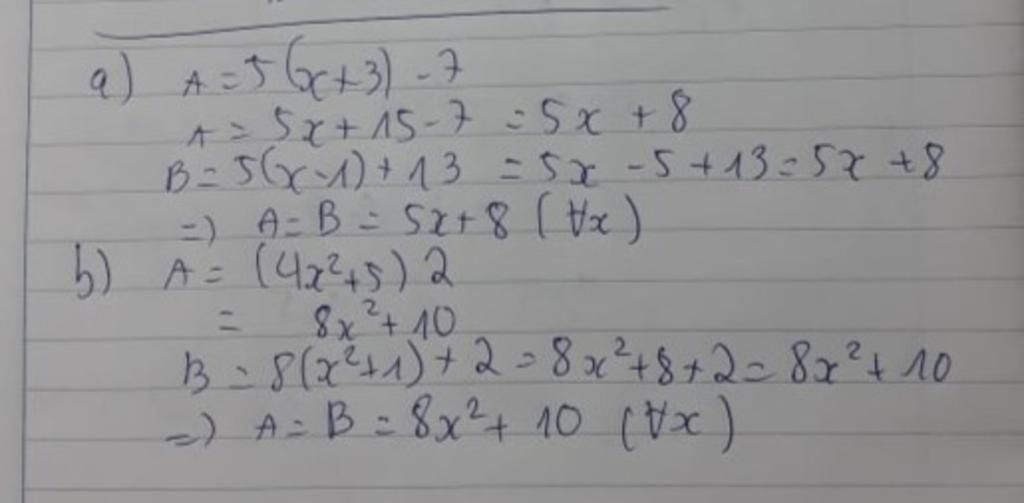 a) A = 5(x+3) - 7
A = 5x + 15 - 7 = 5x + 8
B = 5(x-1) + 13 = 5x - 5 + 13 = 5x + 8
=) A = B = 5x + 8 (∀x)
b) A = (4x²+5) 2
= 8x² + 10
B = 8(x²+1) + 2 = 8x² + 8 + 2 = 8x² + 10
=) A = B = 8x² + 10 (∀x)